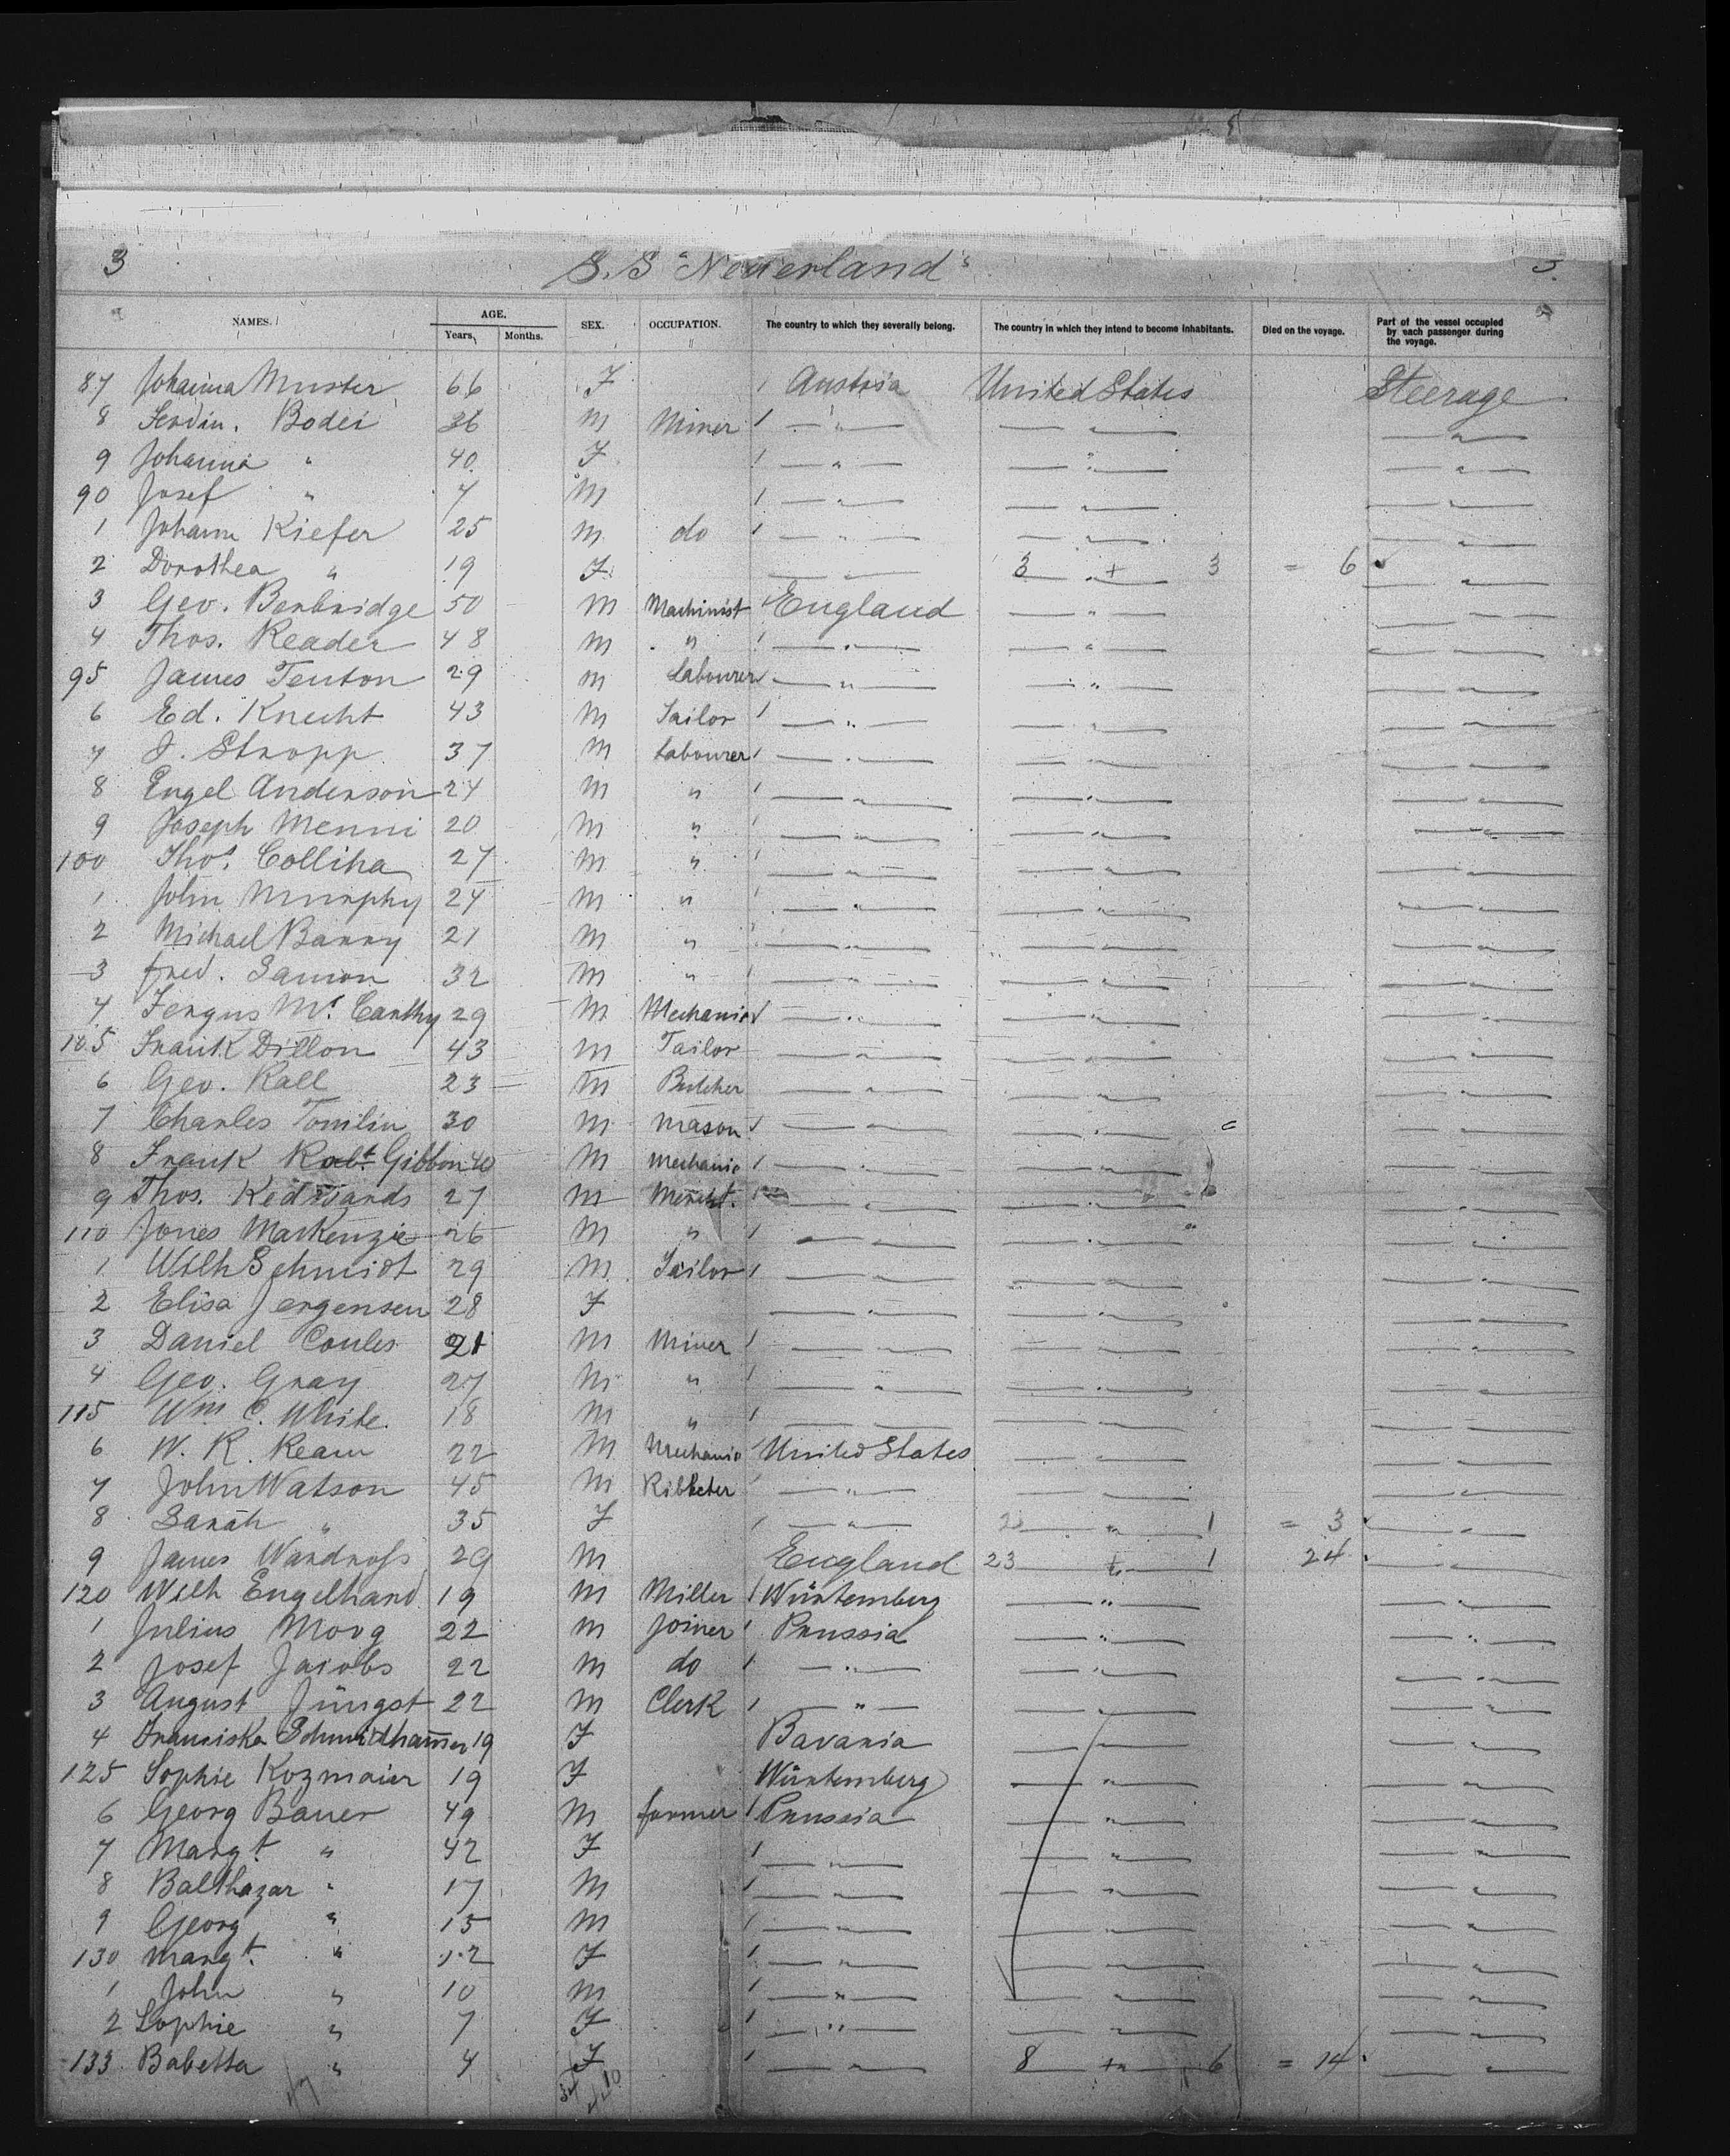 3 S.S "Nederland" 3.
NAMES. AGE. Years, Months. SEX. OCCUPATION. The country to which they severally belong. The country in which they intend to become inhabitants. Died on the voyage. Part of the vessel occupied by each passenger during the voyage.
87 Johanna Muster 66 F / Austria United States Steerage
8 Ferdin. Bodei 36 M Miner / — " — — " — — " —
9 Johanna " 40 F / — " — — " — — " —
90 Josef " 7 M / — " — — " — — " —
1 Johann Kiefer 25 M do / — " — — " — — " —
2 Dorothea " 19 F — " — 3 + 3 = 6 — " —
3 Geo. Benbridge 50 M Machinist / England — " — — " —
4 Thos. Reader 48 M " / — " — — " — — " —
95 James Fenton 29 M Labourer / — " — — " — — " —
6 Ed. Knecht 43 M Sailor / — " — — " — — " —
7 J. Stropp 37 M Labourer / — " — — " — — " —
8 Engel Anderson 24 M " / — " — — " — — " —
9 Joseph Menni 20 M " / — " — — " — — " —
100 Thos. Colliha 27 M " / — " — — " — — " —
1 John Murphy 24 M " / — " — — " — — " —
2 Michael Barry 21 M " / — " — — " — — " —
3 Fred. Samon 32 M " / — " — — " — — " —
4 Fergus Mc. Carthy 29 M Mechanic / — " — — " — — " —
105 Frank Dillon 43 M Tailor — " — — " — — " —
6 Geo. Rall 23 M Butcher — " — — " — — " —
7 Charles Tomlin 30 M Mason / — " — — " — — " —
8 Frank Robt. Gibbon 40 M Mechanic / — " — — " — — " —
9 Thos. Kedwards 27 M Mercht. / — " — — " — — " —
110 Jones MacKenzie 26 M " / — " — — " — — " —
1 Wilh Schmidt 29 M Sailor / — " — — " — — " —
2 Elisa Jergensen 28 F — " — — " — — " —
3 Daniel Coules 21 M Miner / — " — — " — — " —
4 Geo. Gray 27 M " / — " — — " — — " —
115 Wm C. White. 18 M " / — — — " — — " —
6 W. R. Ream 22 M Mechanic / United States — " — — " —
7 John Watson 45 M / — " — — " — — " —
8 Sarah " 35 F / — " — 2 " 1 = 3 — " —
9 James Wardross 29 M England 23 + 1 24 — " —
120 Wilh Engelhard 19 M Miller / Würtemberg — " — — " —
1 Julius Moog 22 M Joiner / Prussia — " — — " —
2 Josef Jacobs 22 M do / — " — — " — — " —
3 August Jüngst 22 M Clerk / — " — — " — — " —
4 Franziska Schmidhammer 19 F Bavaria — " — — " —
125 Sophie Kozmaier 19 F Würtemberg — " — — " —
6 Georg Bauer 49 M farmer / Prussia — " — — " —
7 Margt. " 42 F / — " — — " — — " —
8 Balthazar " 17 M / — " — — " — — " —
9 Georg " 15 M / — " — — " — — " —
130 Margt. " 12 F / — " — — " — — " —
1 John " 10 M / — " — — " — — " —
2 Sophie " 7 F / — " — — " — — " —
133 Babetta " 4 F / — " — 8 + 6 = 14 — " —